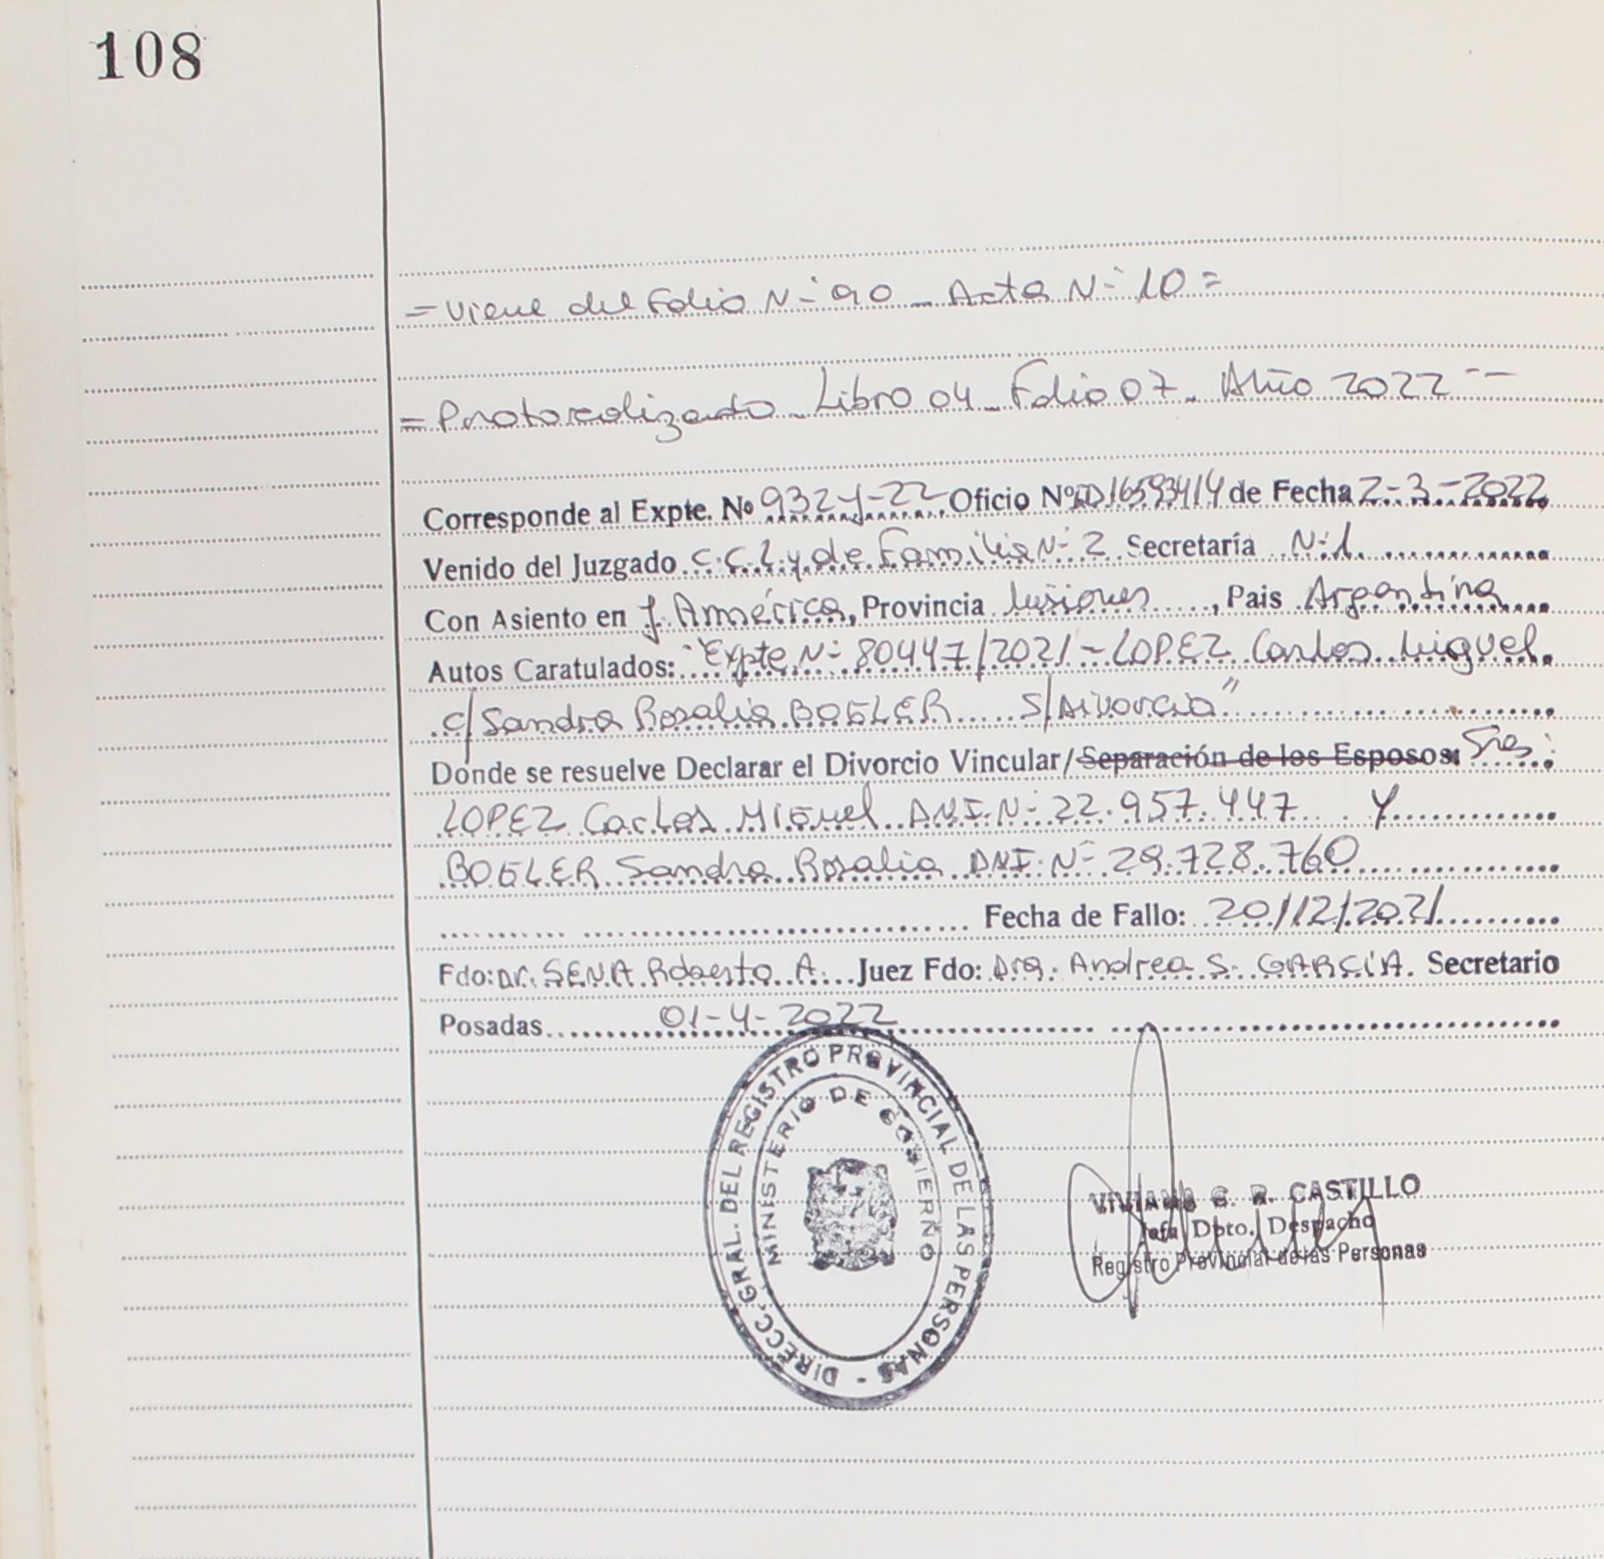 108
= Viene del Folio N- 90 - Acta N- 10 =
= Protocolizado - Libro 04 - Folio 07 - Año 2022 --
Corresponde al Expte. Nº 932-y-22 Oficio Nº ID16593414 de Fecha 2-3-2022
Venido del Juzgado C.C.L. y de Familia N- 2 Secretaría N-1
Con Asiento en J. América, Provincia Misiones, Pais Argentina
Autos Caratulados: "Expte N- 80447/2021 - LOPEZ Carlos Miguel
c/ Sandra Rosalia BOGLER S/Divorcio"
Donde se resuelve Declarar el Divorcio Vincular/Separación de los Esposos: Sres:
LOPEZ Carlos Miguel DNI. N- 22.957.447 Y
BOGLER Sandra Rosalia DNI. N- 29.728.760
Fecha de Fallo: 20/12/2021
Fdo: Dr. SENA Roberto A. Juez Fdo: Dra. Andrea S. GARCÍA. Secretario
Posadas 01-4-2022
DIRECC. GRAL. DEL REGISTRO PROVINCIAL DE LAS PERSONAS -
MINISTERIO DE GOBIERNO
VIVIANA G. R. CASTILLO
Jefa Dpto. Despacho
Registro Provincial de las Personas